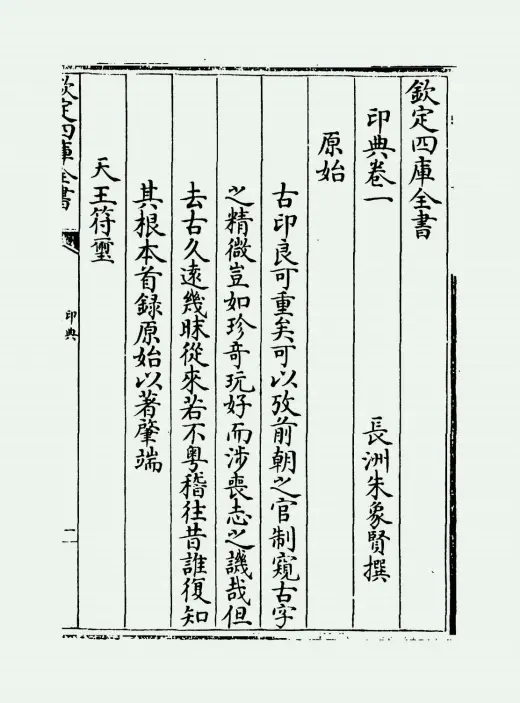 欽定四庫全書
印典卷一
長洲朱象賢撰
原始
古印良可重矣可以攷前朝之官制窺古字
之精微豈如珍奇玩好而涉喪志之譏哉但
去古久遠幾昧從來若不粤稽往昔誰復知
其根本首録原始以著肇端
天王符璽
欽定四庫全書
印典